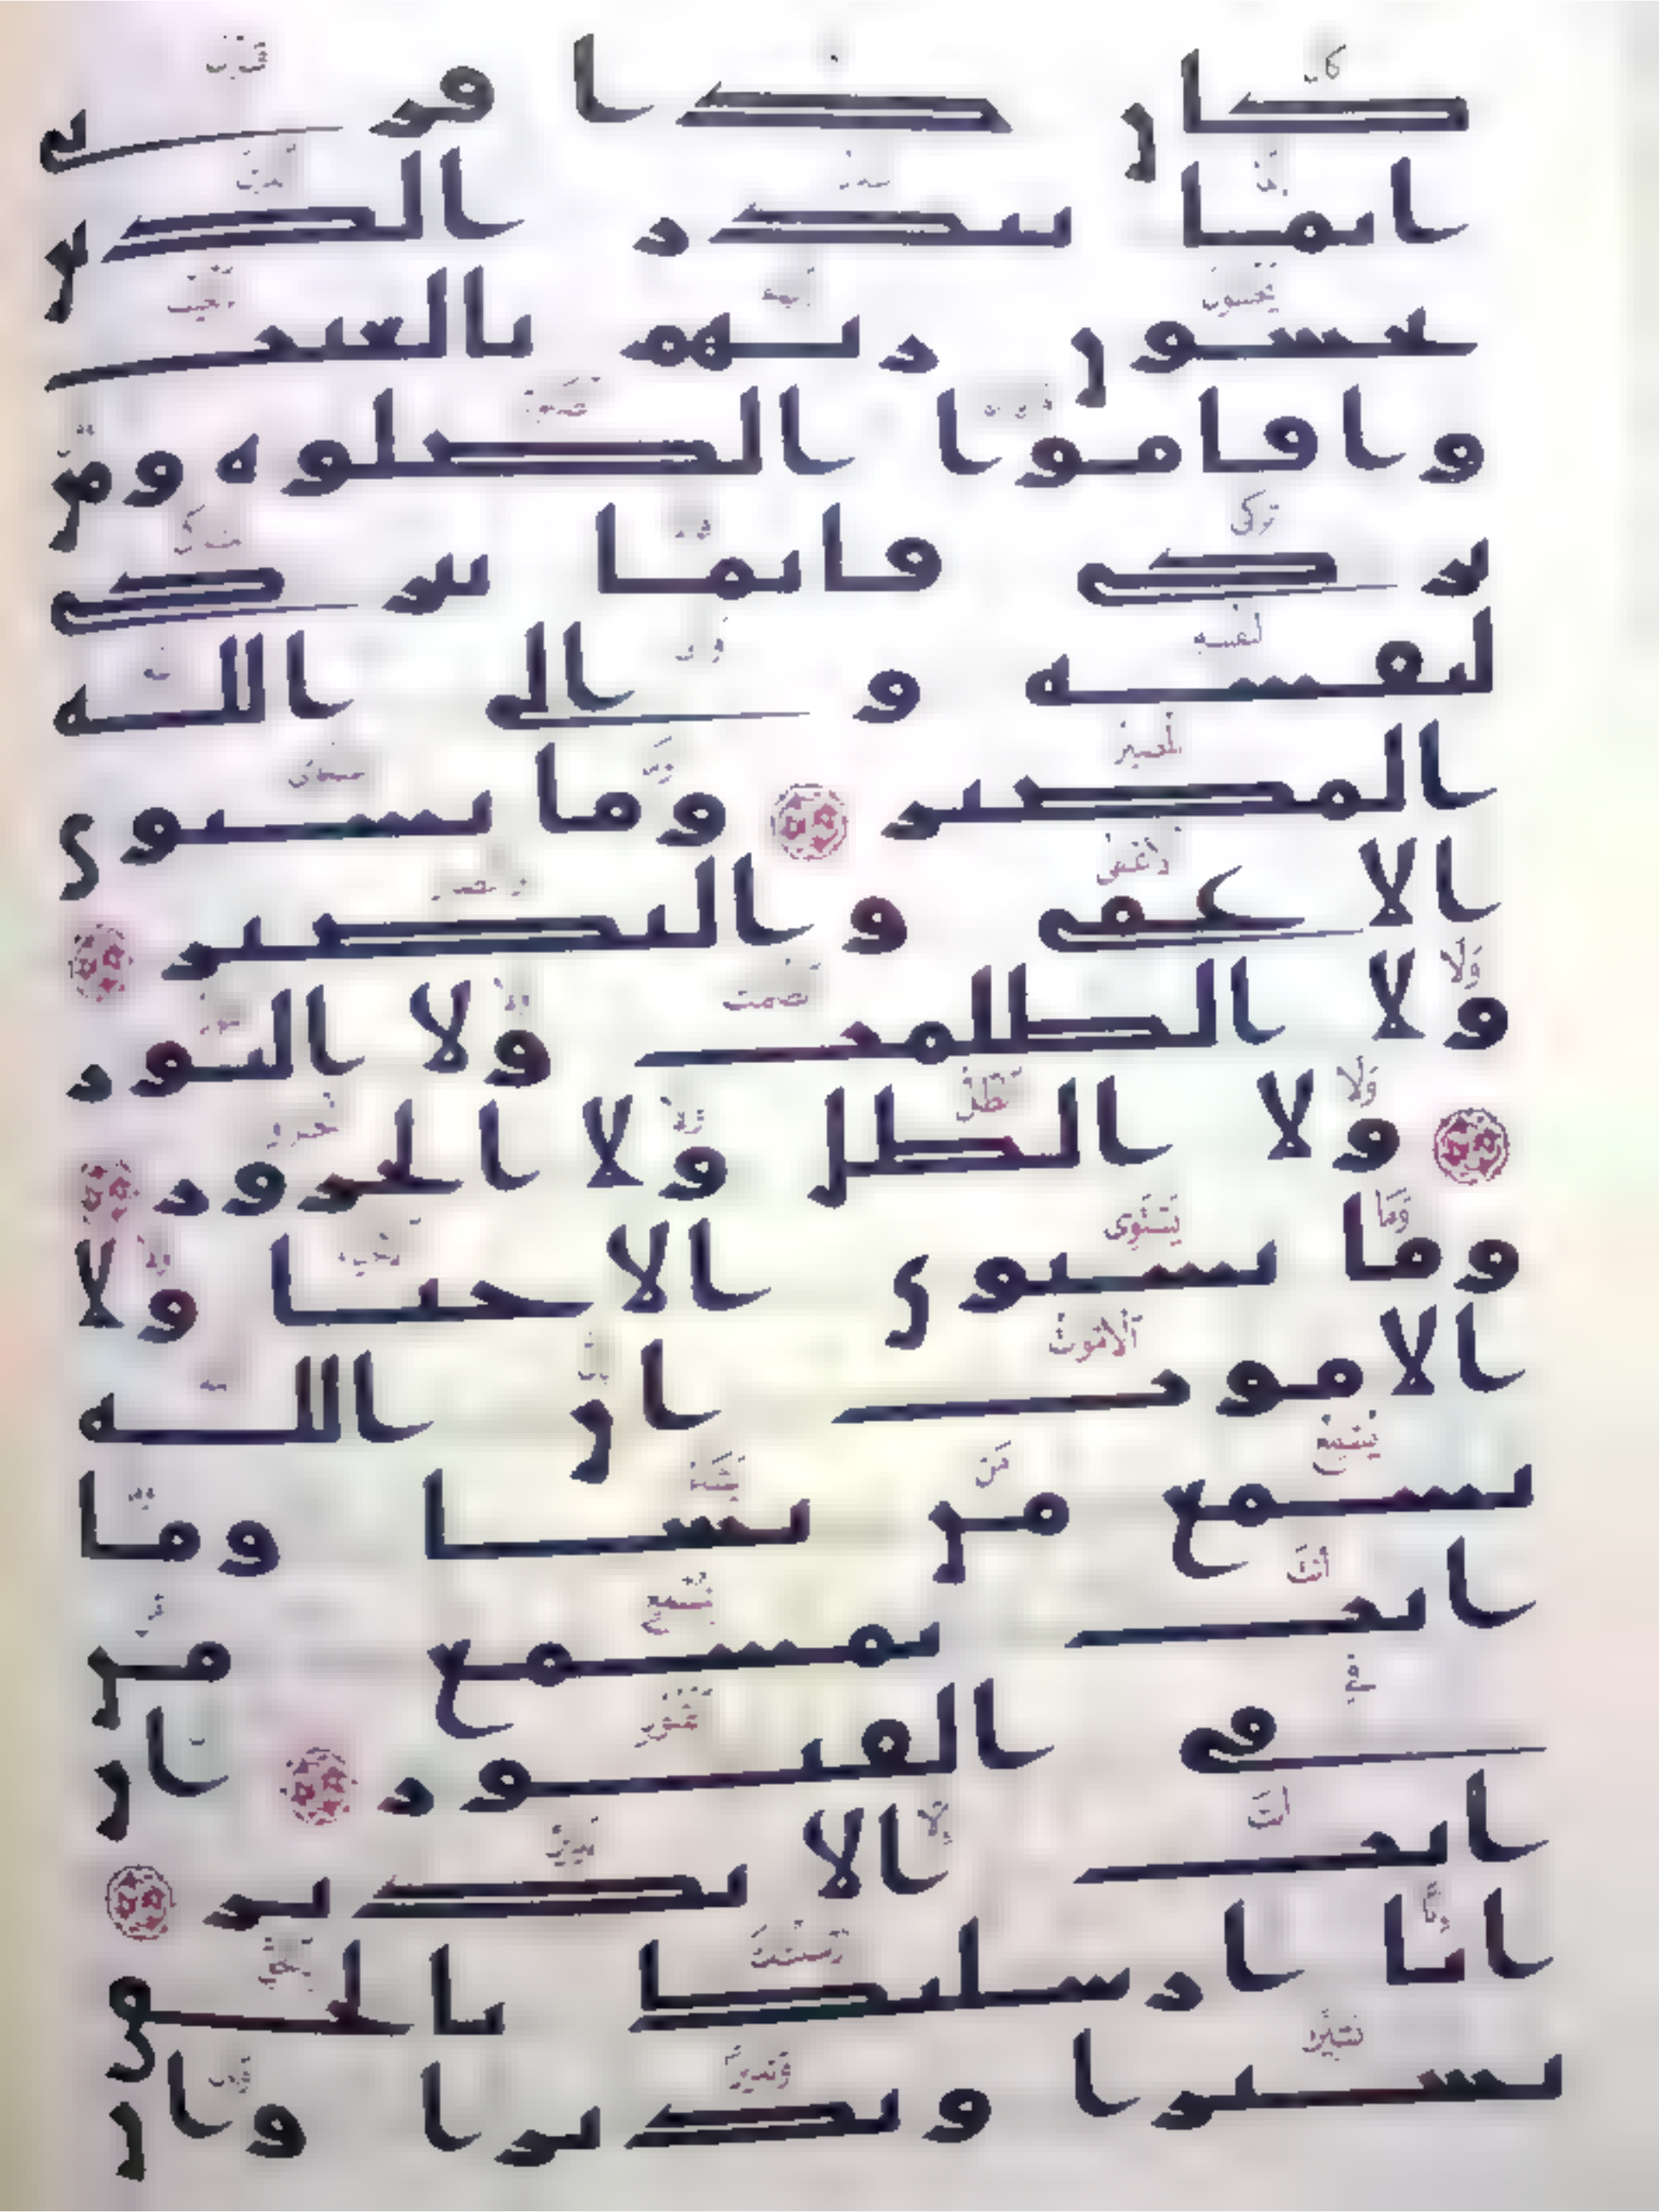 كان ذا قربى
انما تنذر الذين
يخشون ربهم بالغيب
واقاموا الصلوه ومن
تزكى فانما يتزكى
لنفسه و الى الله
المصير وما يستوى
الاعمى والبصير
ولا الظلمت ولا النور
ولا الظل ولا الحرور
وما يستوى الاحيا ولا
الاموت ان الله
يسمع من يشا وما
انت بمسمع من
فى القبور ان
انت الا نذير
انا ارسلنك بالحق
بشيرا ونذيرا وان